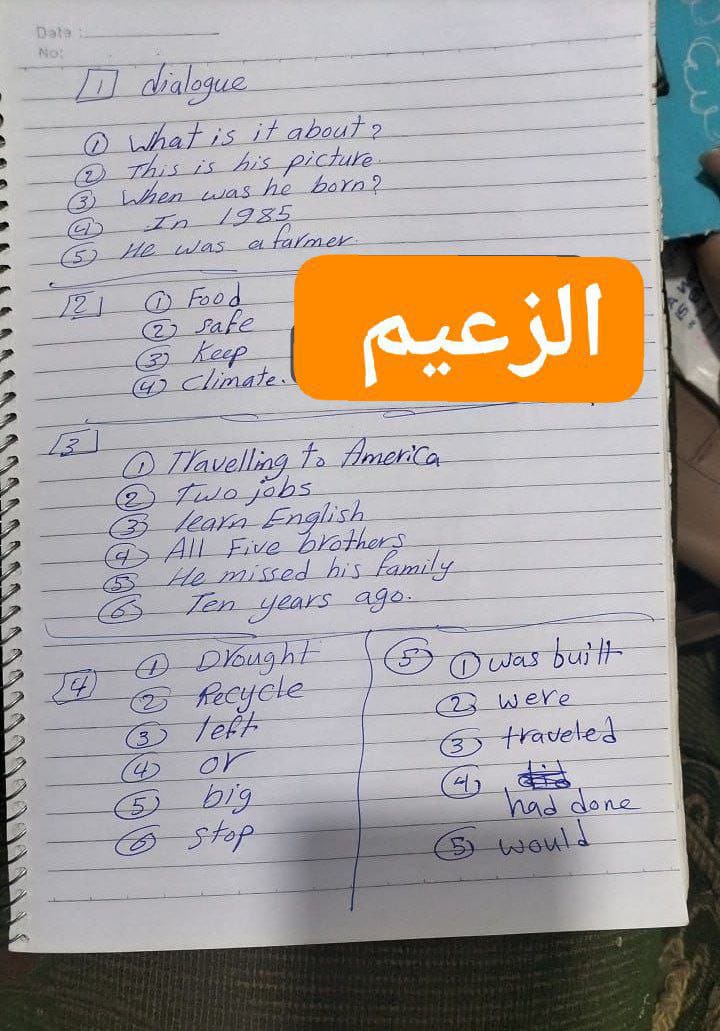 Date :
No:
1 dialogue
① What is it about?
② This is his picture.
③ When was he born?
④ In 1985
⑤ He was a farmer.
2 ① Food
② safe
③ Keep
④ Climate.
الزعيم
3
① Travelling to America
② Two jobs
③ learn English
④ All Five brothers
⑤ He missed his family
⑥ Ten years ago.
4 ① Drought
② Recycle
③ left
④ or
⑤ big
⑥ stop
⑤ ① was built
② were
③ traveled
④ had done
⑤ would